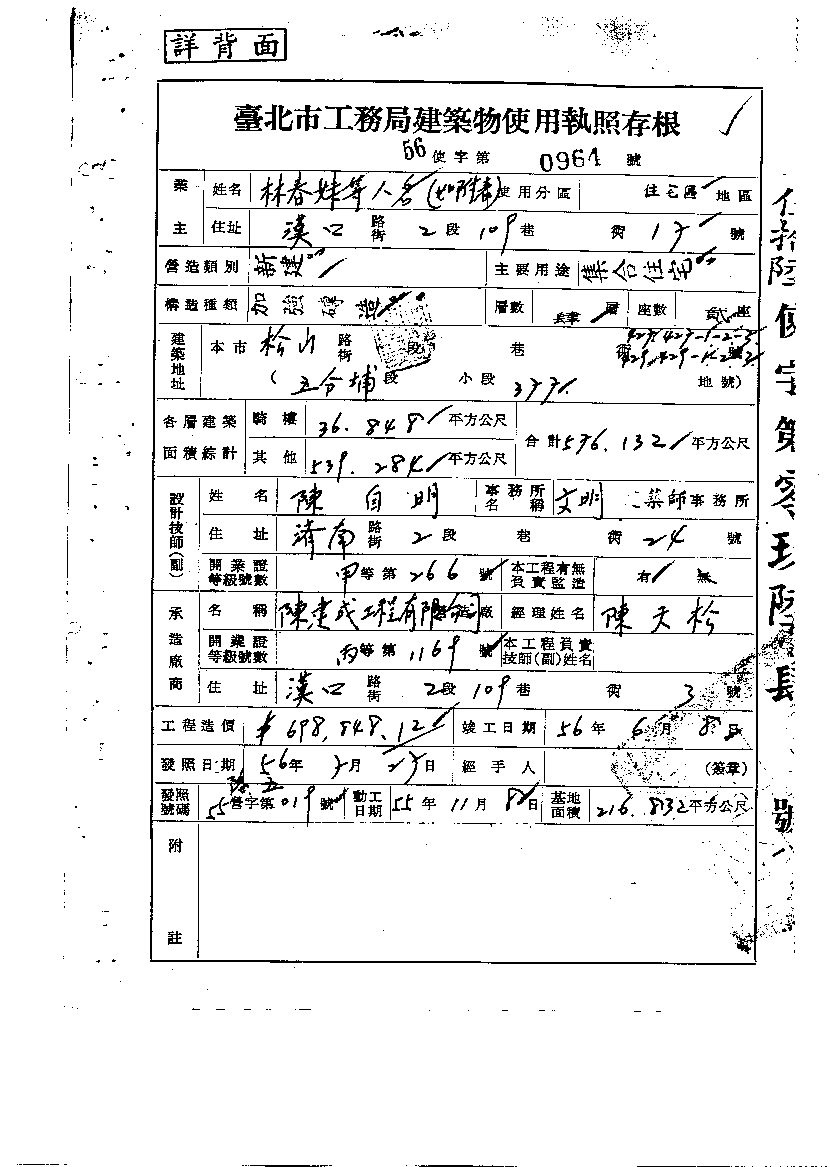 詳背面
臺北市工務局建築物使用執照存根
56 使字第 0964 號
業主 姓名 林春妹等人名 使用分區 住宅區 地區
住址 漢口 路街 2 段 109 巷 街 17 號
營造類別 新建 主要用途 集合住宅
構造種類 加強磚造 層數 肆 層 座數 貳 座
建築地址 本市 松山 路街 段 巷 號
( 五分埔 段 小段 377 地號)
各層建築面積綜計 騎樓 36.848 平方公尺 合計 576.132 平方公尺
其他 539.284 平方公尺
設計技師(副) 姓名 陳自明 事務所名稱 文明 築師事務所
住址 濟南 路街 2 段 巷 街 24 號
開業證等級號數 甲等第 266 號 本工程有無負責監造 有 無
承造廠商 名稱 陳建成工程有限公司 廠 經理姓名 陳天松
開業證等級號數 丙等第 1169 號 本工程負責技師(副)姓名
住址 漢口 路街 2 段 109 巷 街 3 號
工程造價 $698,848.12 竣工日期 56 年 6 月 8 日
發照日期 56 年 7 月 27 日 經手人 (簽章)
發照號碼 55 營字第 019 號 動工日期 55 年 11 月 8 日 基地面積 216.832 平方公尺
附註